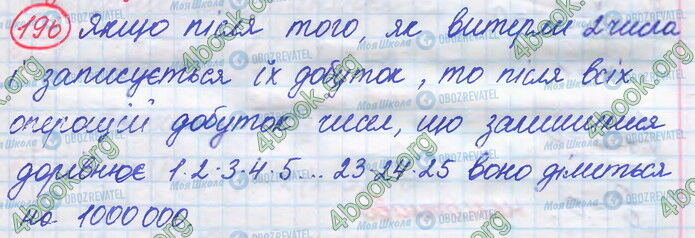 196 Якщо після того, як витерли 2 числа
і записується їх добуток, то після всіх
операцій добуток чисел, що залишилися
дорівнює 1·2·3·4·5... 23·24·25 воно ділиться
на 1000000